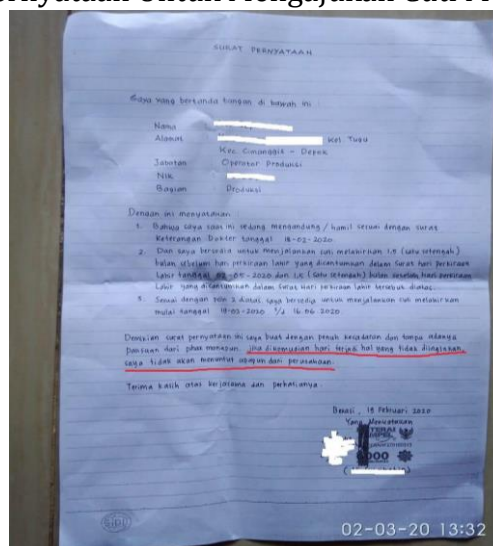 Pernyataan Untuk Mengajukan Cuti M
SURAT PERNYATAAN
Saya yang bertanda tangan di bawah ini :
Nama :
Alamat : Kel. Tugu
Kec. Cimanggis - Depok
Jabatan : Operator Produksi
Nik :
Bagian : Produksi
Dengan ini menyatakan
1. Bahwa saya saat ini sedang mengandung / hamil sesuai dengan surat
Keterangan Dokter tanggal 18-02-2020
2. Dan saya bersedia untuk menjalankan cuti melahirkan 1,5 (satu setengah)
bulan sebelum hari perkiraan lahir yang dicantumkan dalam surat hari perkiraan
lahir tanggal 02-05-2020 dan 1,5 (satu setengah) bulan setelah hari perkiraan
lahir yang dicantumkan dalam surat hari perkiraan lahir tersebut diatas.
3. Sesuai dengan poin 2 diatas saya bersedia untuk menjalankan cuti melahirkan
mulai tanggal 18-03-2020 s/d 16-06-2020
Demikian surat pernyataan ini saya buat dengan penuh kesadaran dan tanpa adanya
paksaan dari pihak manapun. Jika dikemudian hari terjadi hal yang tidak diinginkan
saya tidak akan menuntut apapun dari perusahaan.
Terima kasih atas kerjasama dan perhatianya.
Bekasi, 18 Februari 2020
Yang Menyatakan
TERAI
EMPEL
000
sidu
02-03-20 13:32